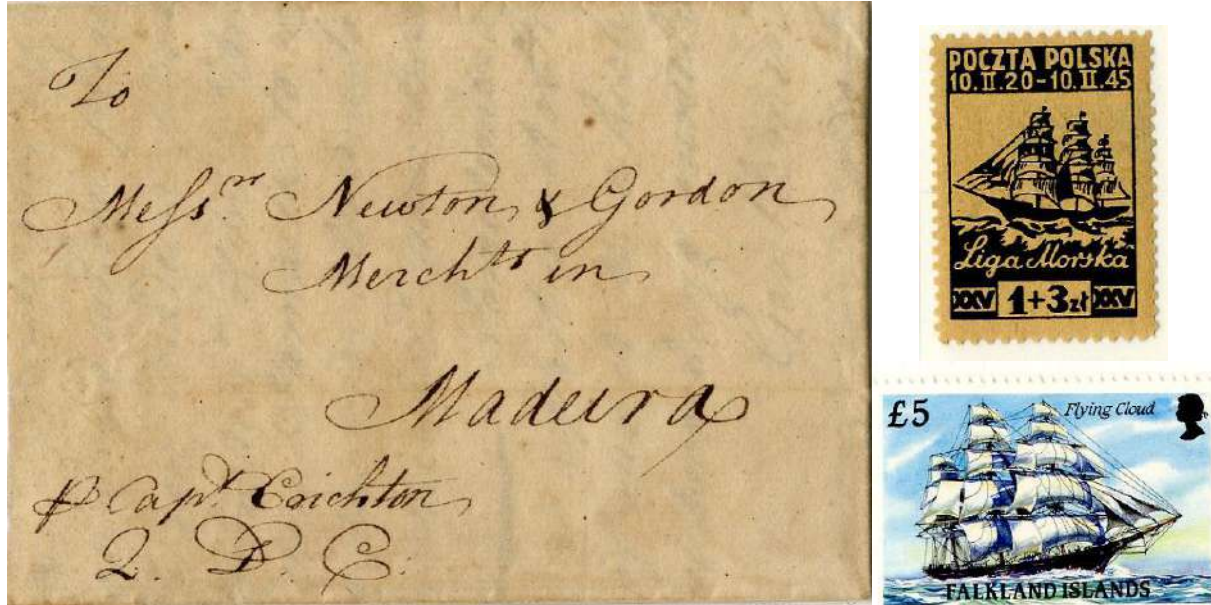 To
Messrs. Newton & Gordon
Merchts in
Madeira
P Capt. Crichton
Q. D. C.
POCZTA POLSKA
10.II.20-10.II.45
Liga Morska
XXV 1+3zł XXV
£5 Flying Cloud
FALKLAND ISLANDS